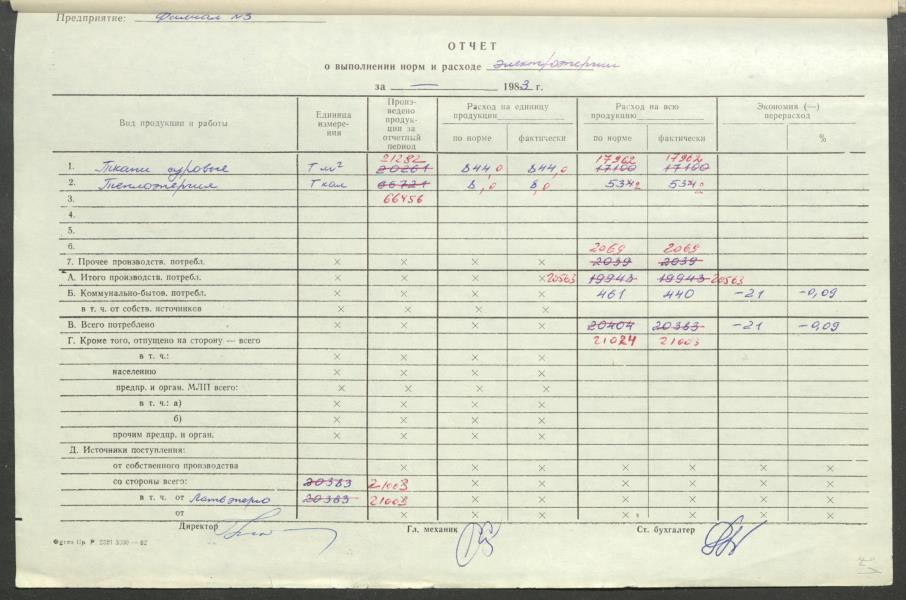 Предприятие: Филиал №3
ОТЧЕТ
о выполнении норм и расходе электроэнергии
за — 1983 г.
Вид продукции и работы
Единица измере- ния
Произ- ведено продук- ции за отчетный период
Расход на единицу продукции
по норме
фактически
Расход на всю продукцию
по норме
фактически
Экономия (—) перерасход
%
21282 17962 17962
1. Ткани суровые Т м² 20261 844,0 844,0 17100 17100
2. Теплоэнергия Т кал 66721 8,0 8,0 534,2 534,2
3. 66456
4.
5.
6. 2069 2069
7. Прочее производств. потребл. × × × × 2039 2039
А. Итого производств. потребл. × × × 20563 19943 19943 20563
Б. Коммунально-бытов. потребл. × × × × 461 440 —21 —0,09
в т. ч. от собств. источников × × × ×
В. Всего потреблено × × × × 20404 20383 —21 —0,09
Г. Кроме того, отпущено на сторону — всего 21024 21003
в т. ч.: × × × ×
населению × × × ×
предпр. и орган. МЛП всего: × × × ×
в т. ч.: а) × × × ×
б) × × × ×
прочим предпр. и орган. × × × ×
Д. Источники поступления:
от собственного производства × × × × × ×
со стороны всего: 20383 21003 × × × × ×
в т. ч. от Латвэнерго 20383 21003 × × × × ×
от × × × × × ×
Директор
Гл. механик
Ст. бухгалтер